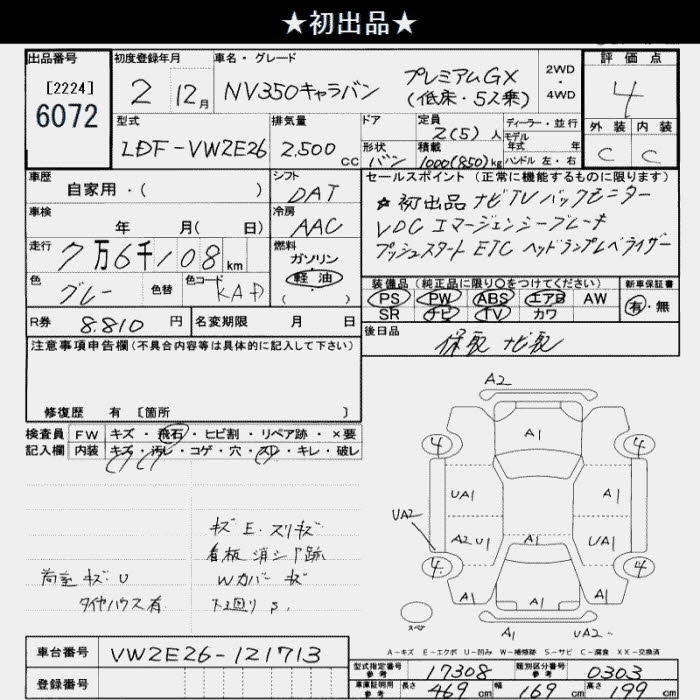 ★初出品★
出品番号
[2224]
6072
初度登録年月
2 12月
車名・グレード
NV350キャラバン
プレミアムGX
(低床・5ス乗)
2WD
・
4WD
評価点
4
外装 内装
C C
型式
LDF-VW2E26
排気量
2,500 cc
ドア
形状
バン
定員
2(5)人
積載
1000(850)kg
ディーラー・並行
モデル
年式 年
ハンドル 左・右
車歴
自家用・( )
シフト
DAT
車検
年 月( 日)
冷房
AAC
走行
7万6千108km
燃料
ガソリン
・
軽油
( )
色
グレー
色替
色コード
KAD
R券
8.810円
名変期限 月 日
セールスポイント(正常に機能するものに限ります)
☆初出品 ナビTV バックモニター
VDC エマージェンシーブレーキ
プッシュスタート ETC ヘッドランプレベライザー
装備品(純正品に限り○をつけてください)
PS PW ABS エアB AW
SR ナビ TV カワ
新車保証書
有・無
後日品
保取 ナビ取
注意事項申告欄(不具合内容等は具体的に記入して下さい)
修復歴 有 [箇所 ]
検査員
記入欄
FW キズ・飛石・ヒビ割・リペア跡・×要
内装 キズ・汚レ・コゲ・穴・スレ・キレ・破レ
キズ E・スリキズ
看板消シ跡
荷室 キズ・U
Wカバー キズ
タイヤハウス有
下廻り S,
A2
A1
4 4
UA1 A1
UA2
A2 U1 A1 UA1
4 4
A1 A1 A1
スペア
A1 UA2
A-キズ E-エクボ U-凹み W-補修跡 S-サビ C-腐食 XX-交換済
車台番号
VW2E26-121713
登録番号
型式指定番号
参考
17308
類別区分番号
参考
0303
車庫証明用
参考
長さ 469cm 幅 169cm 高さ 199cm